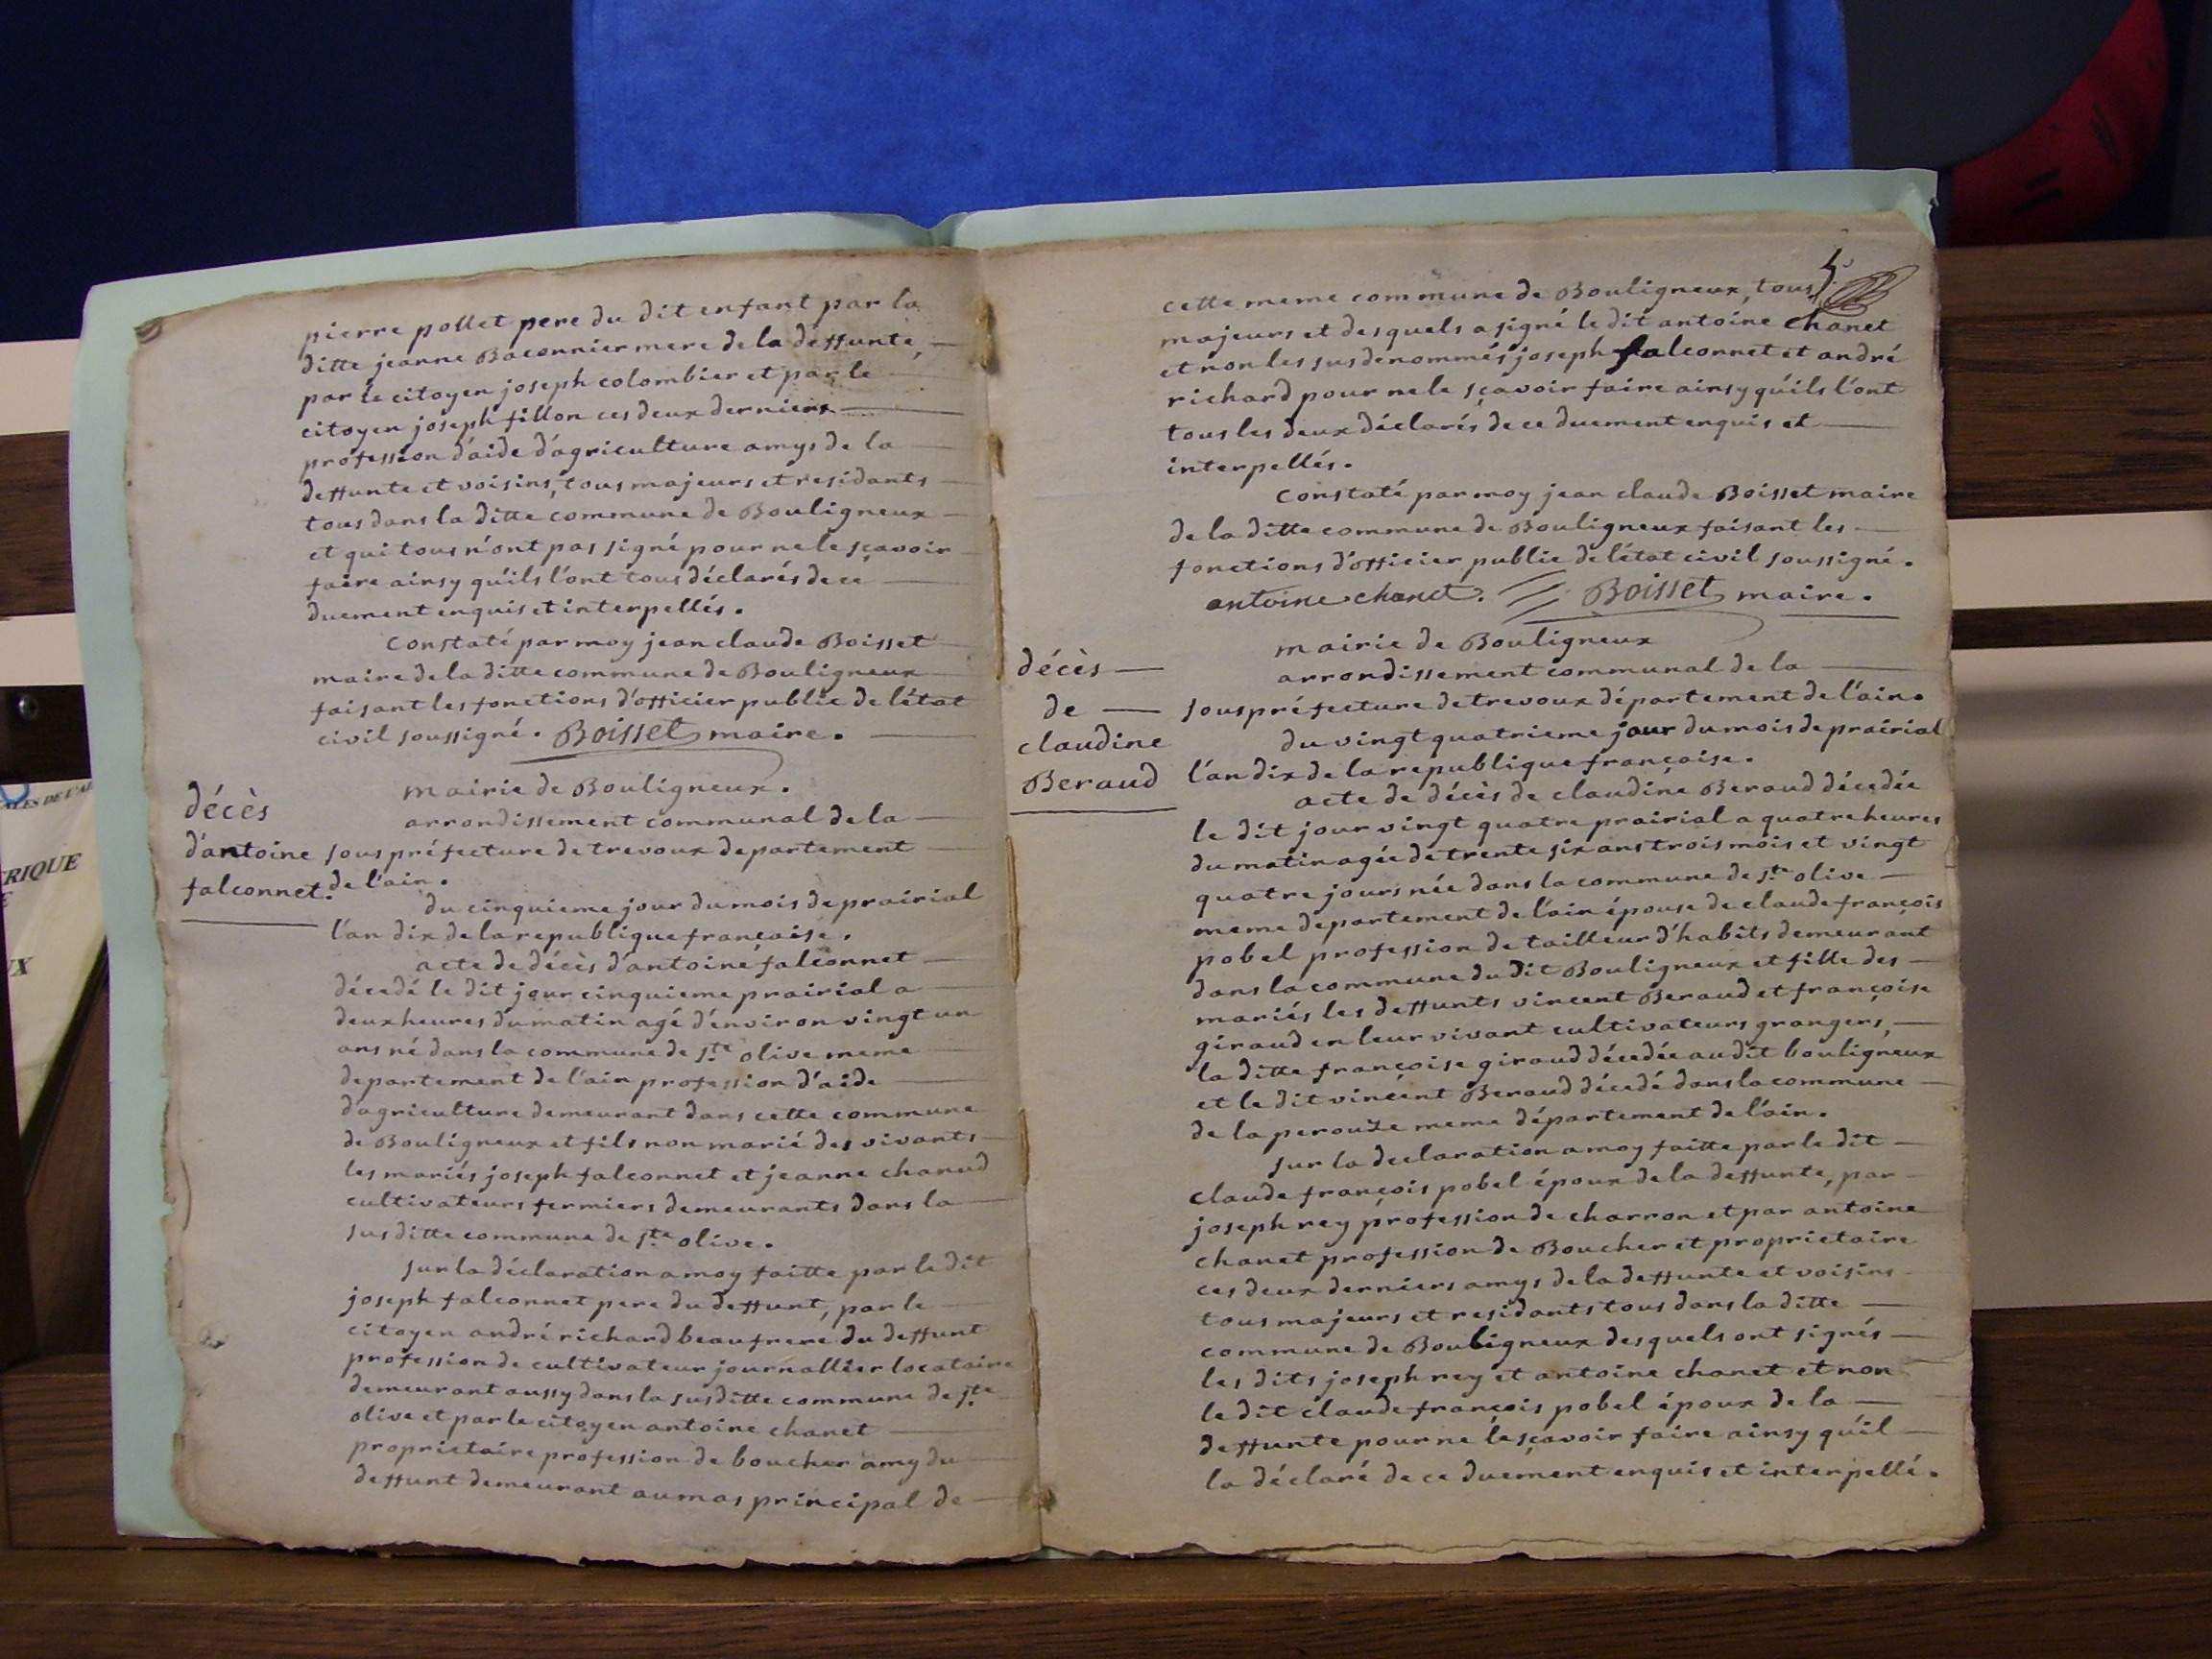 pierre pollet pere du dit enfant par la
ditte jeanne Baconnier mere de la deffunte,
par le citoyen joseph colombier et par le
citoyen joseph fillon ces deux derniers
profession d'aide d'agriculture amys de la
deffunte et voisins, tous majeurs et residants
tous dans la ditte commune de Bouligneux
et qui tous n'ont pas signé pour ne le sçavoir
faire ainsy qu'ils l'ont tous déclarés de ce
duement enquis et interpellés.
Constaté par moy jean claude Boisset
maire de la ditte commune de Bouligneux
faisant les fonctions d'officier public de l'état
civil soussigné. Boisset maire.
décès
d'antoine
falconnet.
mairie de Bouligneux.
arrondissement communal de la
sous préfecture de trevoux departement
de l'ain.
du cinquieme jour du mois de prairial
l'an dix de la republique française.
acte de décès d'antoine falconnet
décedé le dit jour cinquieme prairial a
deux heures du matin agé d'environ vingt un
ans né dans la commune de ste olive meme
departement de l'ain profession d'aide
d'agriculture demeurant dans cette commune
de Bouligneux et fils non marié des vivants
les mariés joseph falconnet et jeanne chanud
cultivateurs fermiers demeurants dans la
susditte commune de ste olive.
sur la déclaration a moy faitte par le dit
joseph falconnet pere du deffunt, par le
citoyen andré richard beaufrere du deffunt
profession de cultivateur journallier locataire
demeurant aussy dans la susditte commune de ste
olive et par le citoyen antoine chanet
proprietaire profession de boucher amy du
deffunt demeurant au mas principal de
cette meme commune de Bouligneux, tous
majeurs et desquels a signé le dit antoine chanet
et non les susdenommés joseph falconnet et andré
richard pour ne le sçavoir faire ainsy qu'ils l'ont
tous les deux déclarés de ce duement enquis et
interpellés.
Constaté par moy jean claude Boisset maire
de la ditte commune de Bouligneux faisant les
fonctions d'officier public de l'état civil soussigné.
antoine chanet. Boisset maire.
décès
de
claudine
Beraud
mairie de Bouligneux
arrondissement communal de la
souspréfecture de trevoux département de l'ain.
du vingt quatrieme jour du mois de prairial
l'an dix de la republique française.
acte de décès de claudine Beraud décedée
le dit jour vingt quatre prairial a quatre heures
du matin agée de trente six ans trois mois et vingt
quatre jours née dans la commune de ste olive
meme departement de l'ain épouse de claude françois
pobel profession de tailleur d'habits demeurant
dans la commune du dit Bouligneux et fille des
mariés les deffunts vincent Beraud et françoise
giraud en leur vivant cultivateurs grangers,
la ditte françoise giraud décedée au dit bouligneux
et le dit vincent Beraud décedé dans la commune
de la perouze meme département de l'ain.
sur la declaration a moy faitte par le dit
claude françois pobel époux de la deffunte, par
joseph rey profession de charron et par antoine
chanet profession de Boucher et proprietaire
ces deux derniers amys de la deffunte et voisins
tous majeurs et residants tous dans la ditte
commune de Bouligneux desquels ont signés
les dits joseph rey et antoine chanet et non
le dit claude françois pobel époux de la
deffunte pour ne le sçavoir faire ainsy qu'il
la déclaré de ce duement enquis et interpellé.
RIQUE